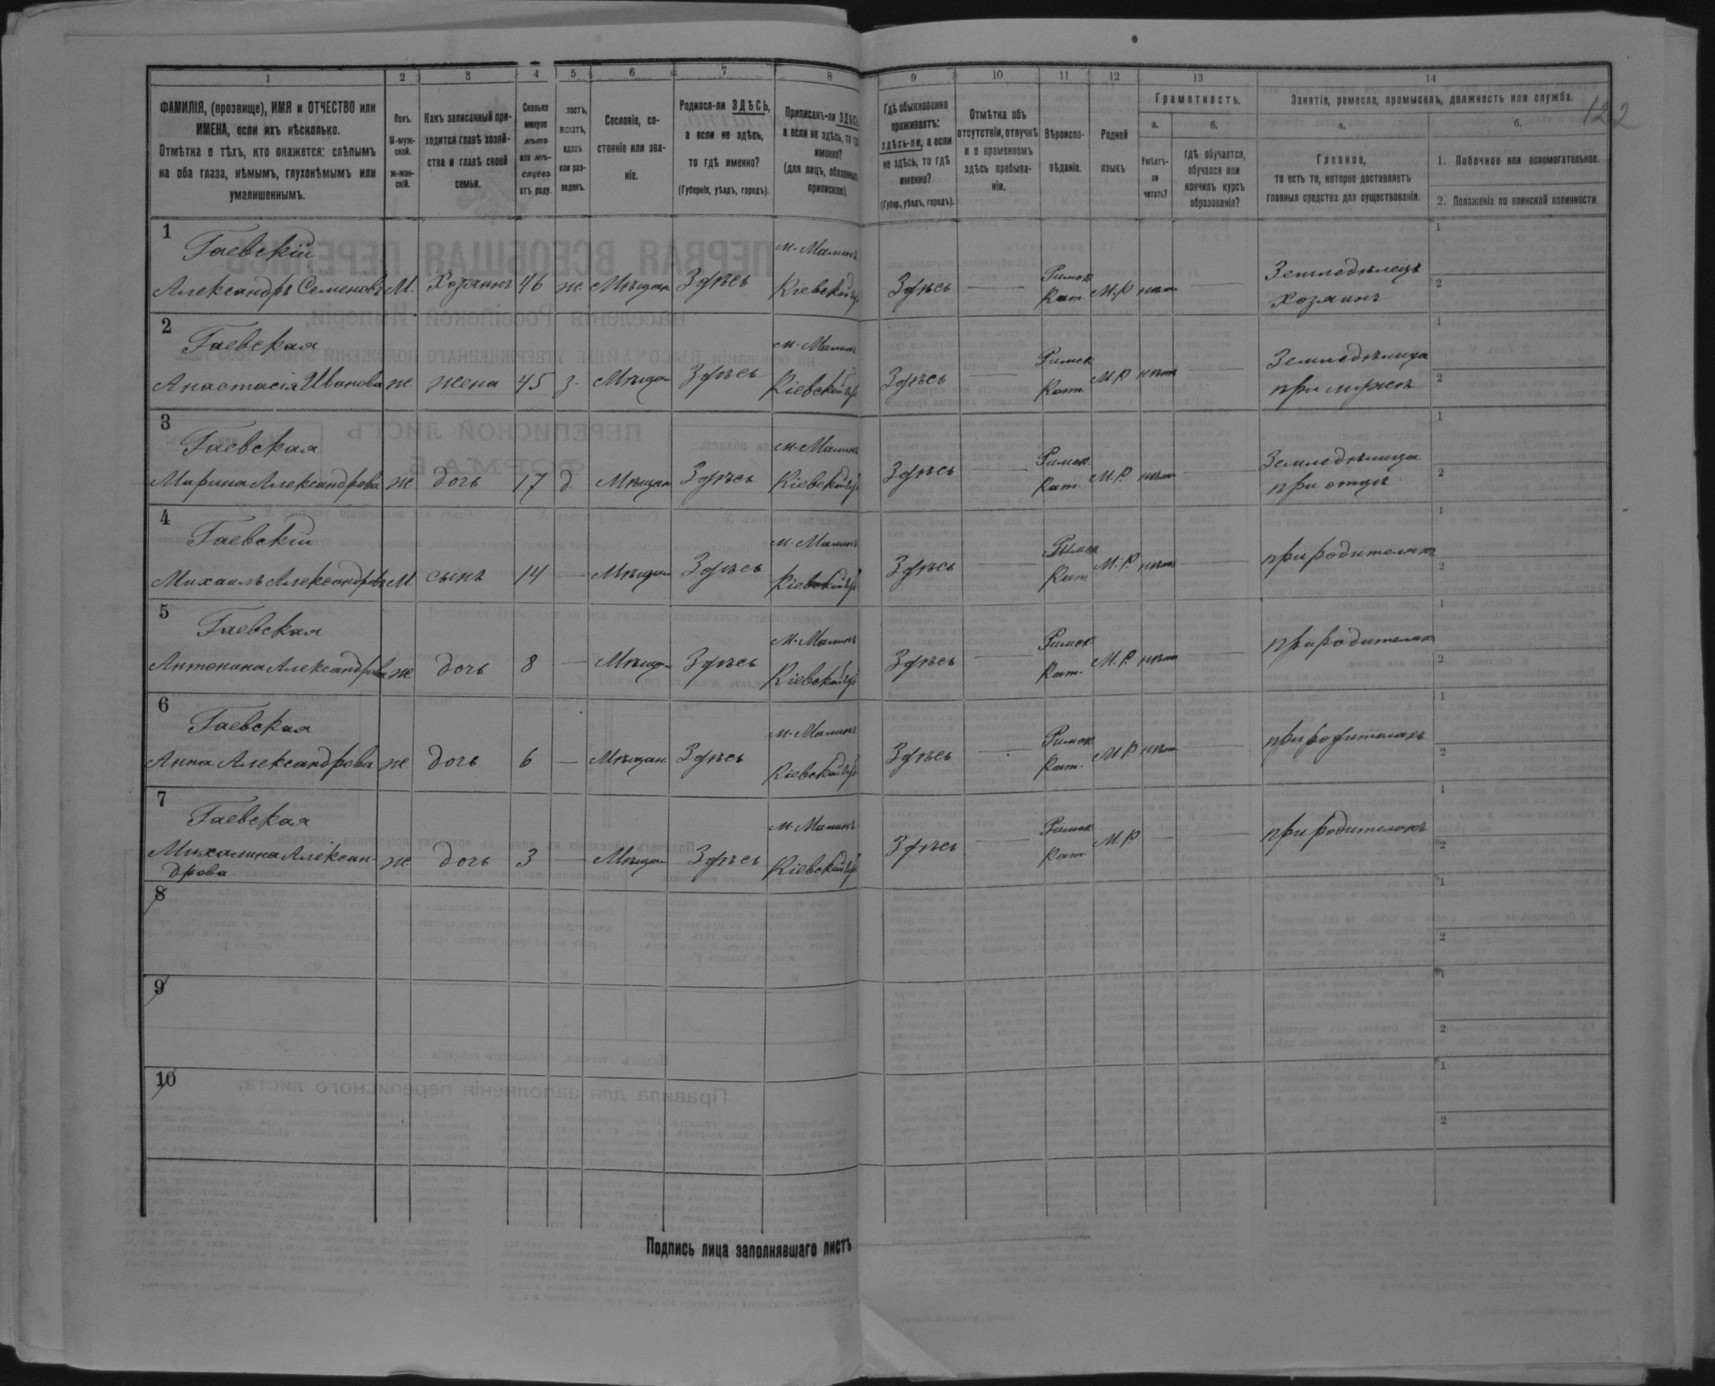 1 2 3 4 5 6 7 8 9 10 11 12 13 14
122
ФАМИЛІЯ, (прозвище), ИМЯ и ОТЧЕСТВО или
ИМЕНА, если ихъ нѣсколько.
Отмѣтка о тѣхъ, кто окажется: слѣпымъ
на оба глаза, нѣмымъ, глухонѣмымъ или
умалишеннымъ.
Полъ.
М-муж-
ской.
ж-жен-
скій.
Какъ записанный при-
ходится главѣ хозяй-
ства и главѣ своей
семьи.
Сколько
минуло
лѣтъ
или мѣ-
сяцевъ
отъ роду.
лостъ,
женатъ,
вдовъ
или раз-
веденъ.
Сословіе, со-
стояніе или зва-
ніе.
Родился-ли ЗДѢСЬ,
а если не здѣсь,
то гдѣ именно?
(Губернія, уѣздъ, городъ).
Приписанъ-ли ЗДѢСЬ
а если не здѣсь, то гдѣ
именно?
(для лицъ, обязанныхъ
припискою)
Гдѣ обыкновенно
проживаетъ:
здѣсь-ли, а если
не здѣсь, то гдѣ
именно?
(Губер., уѣздъ, городъ).
Отмѣтка объ
отсутствіи, отлучкѣ
и о временномъ
здѣсь пребыва-
ніи.
Вѣроиспо-
вѣданіе.
Родной
языкъ
Грамотность.
а.
Умѣетъ-
ли
читать?
б.
гдѣ обучается,
обучался или
кончилъ курсъ
образованія?
Занятіе, ремесло, промыселъ, должность или служба.
а.
Главное,
то есть то, которое доставляетъ
главныя средства для существованія.
б.
1. Побочное или вспомогательное.
2. Положеніе по воинской повинности.
1
Гаевскій
Александръ Семеновъ М. Хозяинъ 46 ж. Мѣщан Здѣсь м. Малинъ
Кіевской губ Здѣсь — Римск
Кат. М.Р нѣт — Земледѣлецъ
хозяинъ 1
2
2
Гаевская
Анастасія Иванова ж жена 45 з. Мѣщан Здѣсь м. Малинъ
Кіевской губ Здѣсь — Римск
Кат. М.Р нѣт — Земледѣлица
при мужѣ 1
2
3
Гаевская
Марина Александрова ж дочь 17 д. Мѣщан Здѣсь м. Малинъ
Кіевской губ Здѣсь — Римск
Кат. М.Р нѣт — Земледѣлица
при отцѣ 1
2
4
Гаевскій
Михаилъ Александровъ М сынъ 14 — Мѣщан Здѣсь м. Малинъ
Кіевской губ Здѣсь — Римск
Кат М.Р. нѣт — при родителях 1
2
5
Гаевская
Антонина Александрова ж дочь 8 — Мѣщан Здѣсь м. Малинъ
Кіевской губ Здѣсь — Римск
Кат. М.Р нѣт — при родителях 1
2
6
Гаевская
Анна Александрова ж. дочь 6 — Мѣщан. Здѣсь м. Малинъ
Кіевской губ Здѣсь — Римск
Кат. М.Р нѣт — при родителяхъ 1
2
7
Гаевская
Михалина Алексан-
дрова ж. дочь 3 — Мѣщан Здѣсь м. Малинъ
Кіевской губ Здѣсь — Римск
Кат М.Р — — при родителяхъ 1
2
8 1
2
9 1
2
10 1
2
Подпись лица заполнявшаго листъ